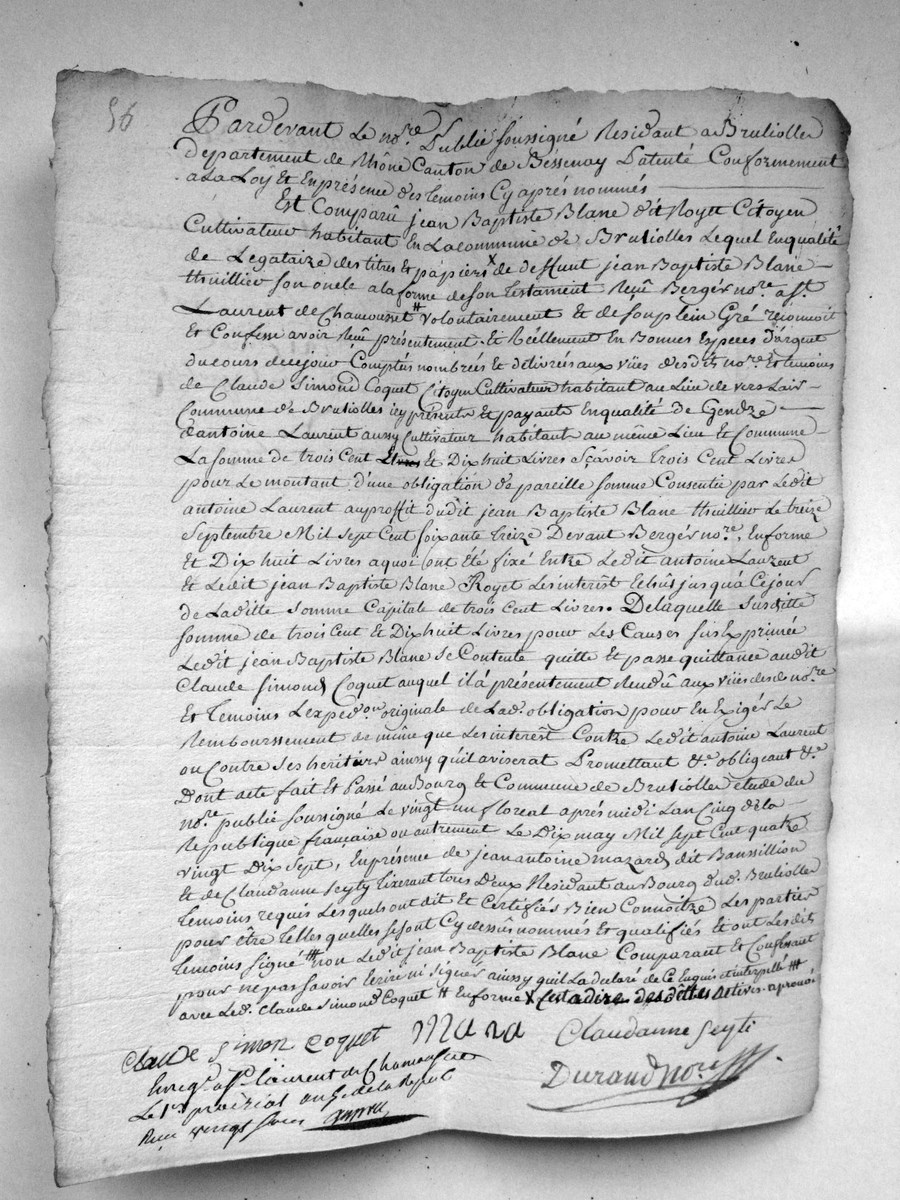 56
Pardevant Le nore Public soussigné Residant a Brulioller
departement de Rhône Canton de Bessenay Patenté Conformement
a La Loy Et En présence des temoins Cy aprés nommés
Est Comparû jean Baptiste Blanc dit Royet Citoyen
Cultivateur habitant En La commune de Brulioller Lequel En qualité
de Legataire des titres et papiers x de deffunt jean Baptiste Blanc
thuillier son oncle a la forme de son testament Reçû Bergér nore a St
Laurent de Chamousset # volontairement Et de son plein Gré reconnoit
Et Confesse avoir Reçû présentement Et Réellement En Bonnes Especes D'argent
du cours de ce jour Comptés nombrées et délivrés aux vües des dits nore Et temoins
de Claude Simond Coquet Citoyen Cultivateur habitant au Lieu de vers
Commune de Brulioller icy présent Et payant En qualité de Gendre
d'antoine Laurent aussy Cultivateur habitant au même Lieu Et Commune
La somme de trois Cent Livres Et Dix huit Livres sçavoir trois Cent Livres
pour Le montant d'une obligation de pareille somme Consentie par Le dit
antoine Laurent au proffit du dit jean Baptiste Blanc thuillier Le treize
Septembre Mil Sept Cent Soixante treize Devant Bergér nore, En forme
Et Dix huit Livres a quoi ont été fixé Entre Le dit antoine Laurent
Et Le dit jean Baptiste Blanc Royet Les interist Echûs jusqu'à Ce jour
de La ditte Somme Capitale de trois Cent Livres. De laquelle Susditte
somme de trois Cent Et Dix huit Livres pour Les Causes sus Exprimée
Le dit jean Baptiste Blanc Se Contente quitte Et passe quittance au dit
Claude Simond Coquet auquel il a présentement Rendû aux vües des d. nore
Et temoins L'expedon originale de La d. obligation pour En Exigér Le
Remboursement de même que Les interest Contre Le dit antoine Laurent
ou Contre Ses heritiers ainssy qu'il aviserat Promettant &c obligeant &c
Dont acte fait Et Passé au Bourg Et Commune de Brulioller étude du
nore publié soussigné Le vingt un floreal aprés midi L'an Cinq de la
Republique française ou autrement Le Dix may Mil Sept Cent quatre
vingt Dix Sept, En présence de jean antoine Mazard dit Banssillion
Et de Claud'anne Seyty tixerant tous Deux Residant au Bourg du d. Brulioller
temoins requis Lesquels ont dit Et Certifiés Bien Connoître Les parties
pour être telles quelles se sont Cy dessûs nommés Et qualifiés Et ont Les dits
temoins Signé ## non Le dit jean Baptiste Blanc Comparant Et Confessant
pour ne pas Savoir Ecrire ni Signer ainssy qu'il La declaré de Ce Enquis et interpellé ##
avec Le d. Claude Simond Coquet # En forme x C'est a dire des dettes actives aprouvé
Claude Simon coquet Mazard Claudanne Seyti
Enregé a St laurent de Chamousset Durand nore
Le 1er prairial an 5e de la Repub
Reçu vingt sous